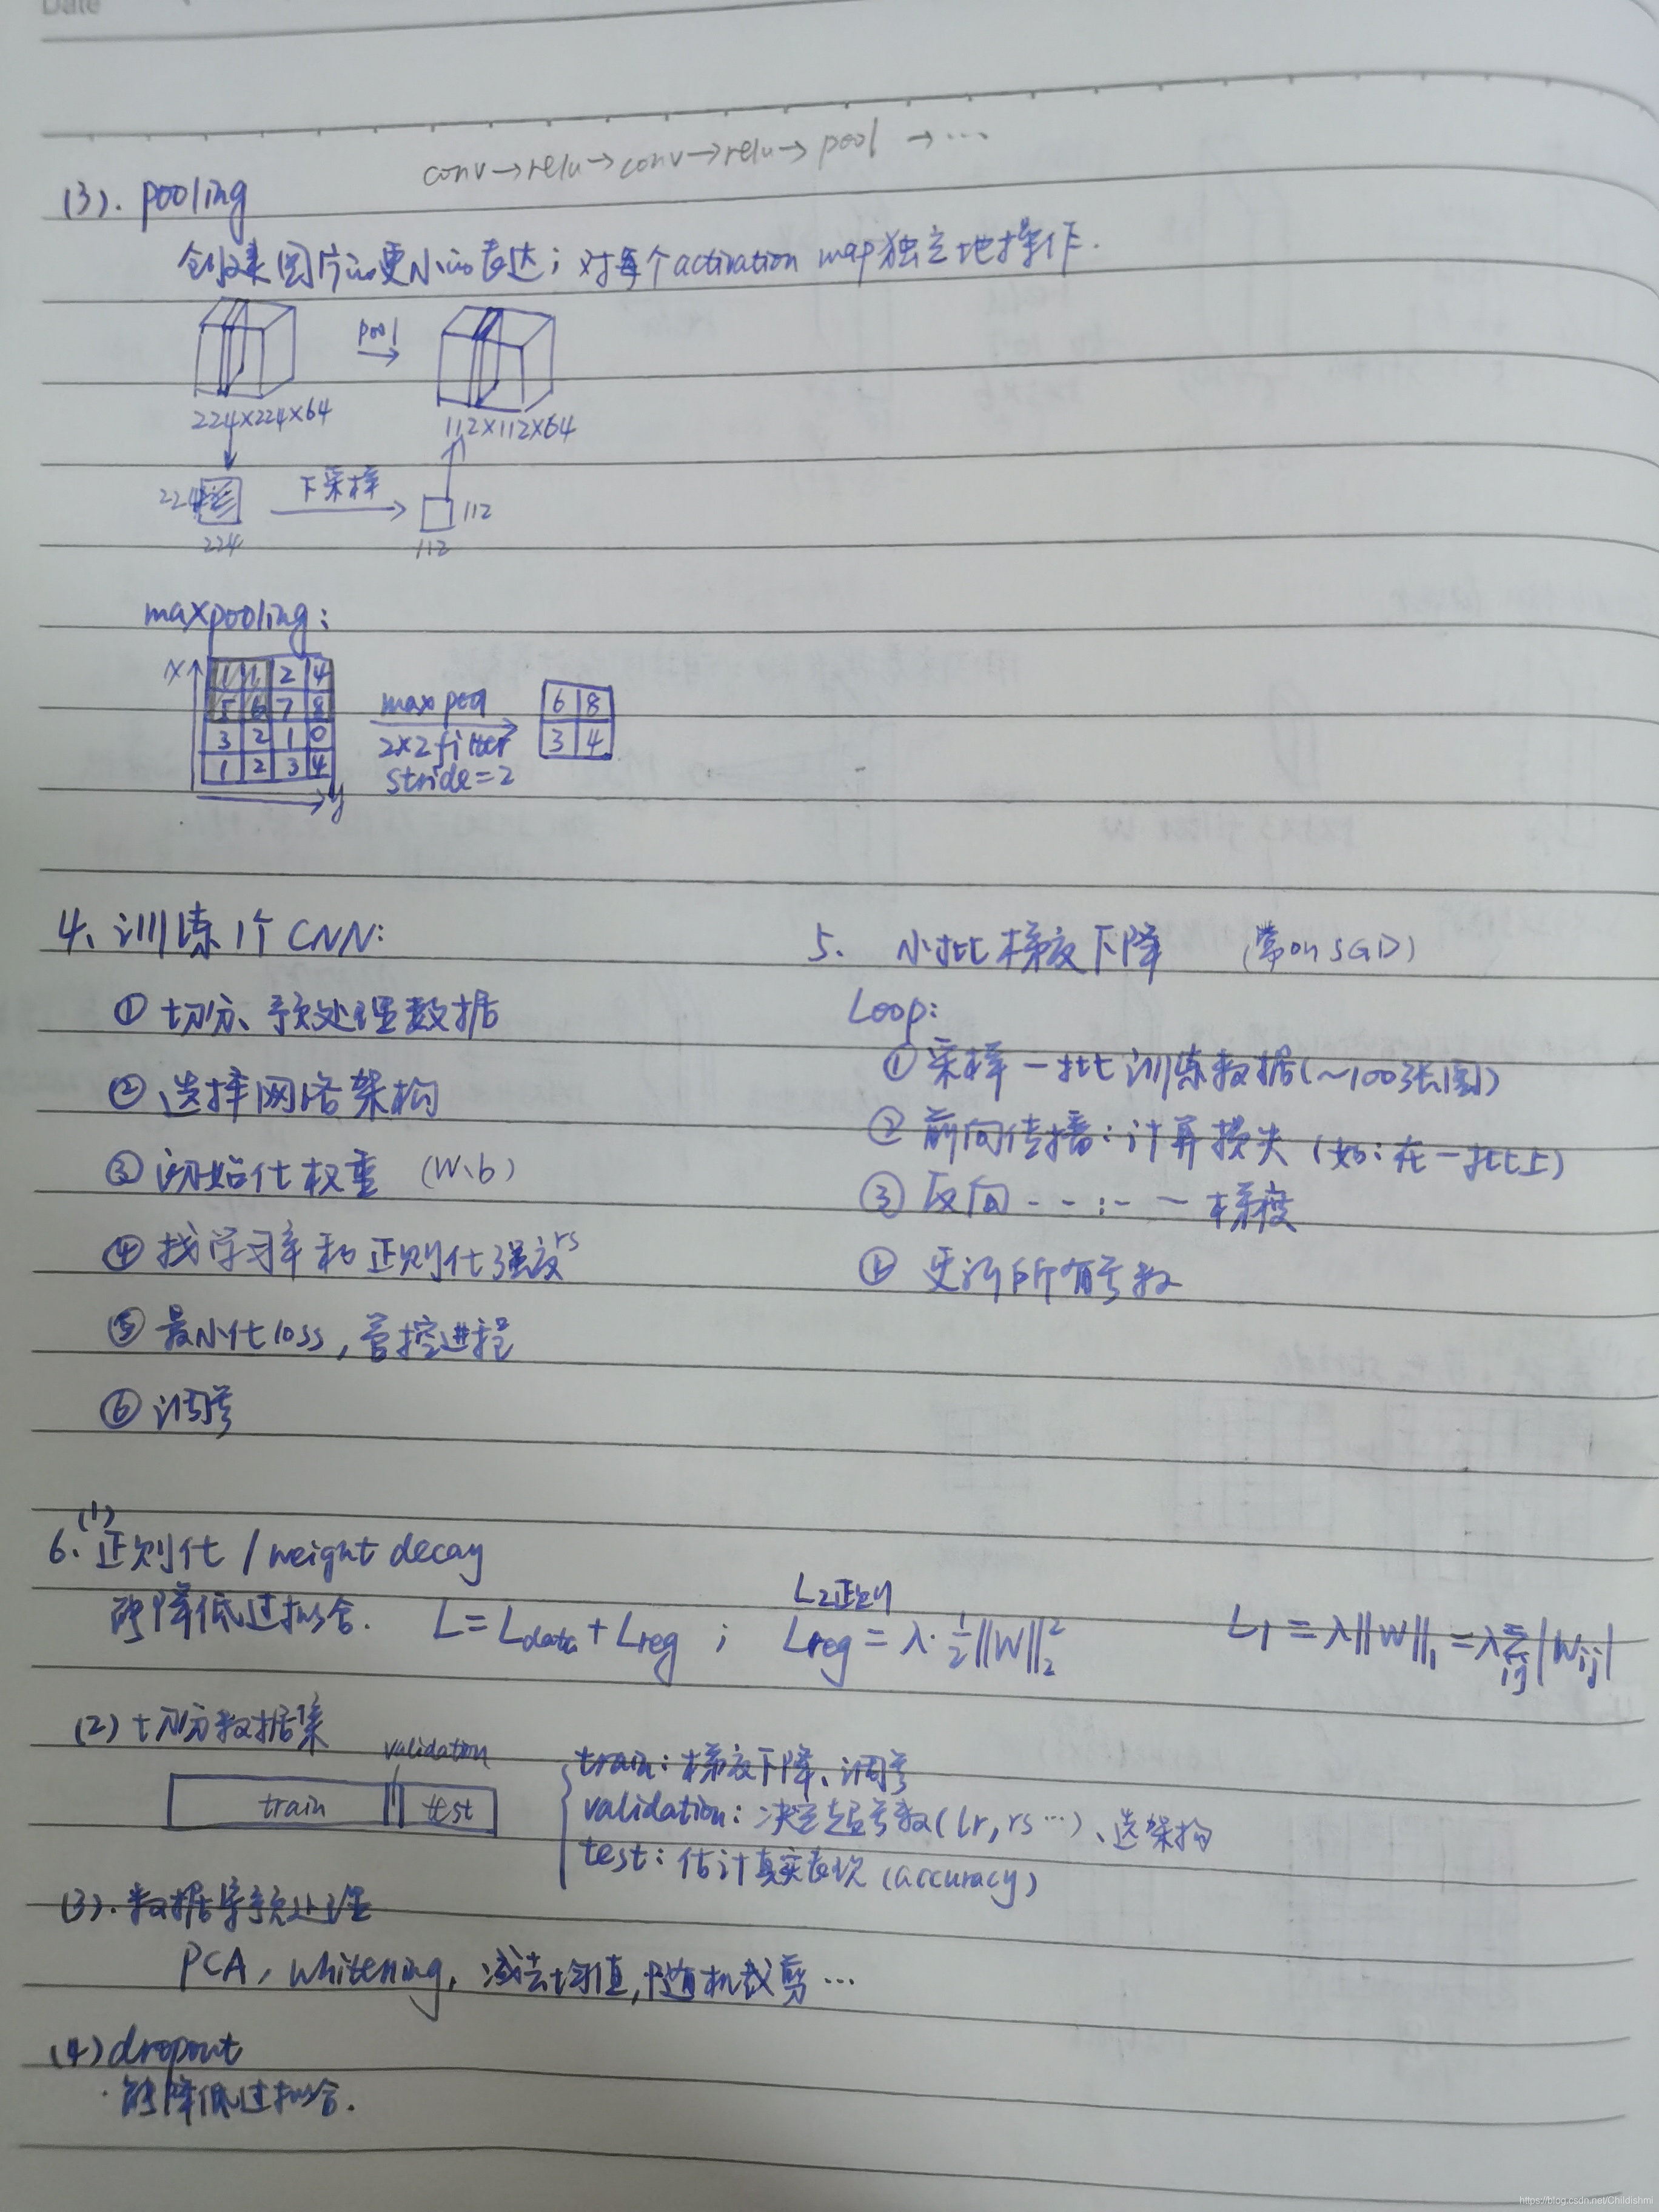 Date
conv→relu→conv→relu→pool→…
(3). pooling
创建图片的更小的表达；对每个activation map独立地操作.
pool
224×224×64
112×112×64
224
下采样
112
224
112
maxpooling:
x
1 1 2 4
5 6 7 8
3 2 1 0
1 2 3 4
y
max pool
2×2 filter
stride=2
6 8
3 4
4、训练1个CNN:
① 切分、预处理数据
② 选择网络架构
③ 初始化权重 (W、b)
④ 找学习率和正则化强度rs
⑤ 最小化loss, 管控进程
⑥ 调参
5. 小批梯度下降 (常叫SGD)
Loop:
① 采样一批训练数据(~100张图)
② 前向传播：计算损失 (如：在一批上)
③ 反向--：-- 梯度
④ 更新所有参数
6. (1) 正则化 / weight decay
能降低过拟合. L = Ldata + Lreg ; L2正则 Lreg = λ·½||W||₂² L1 = λ||W||₁ = λ∑ij|Wij|
(2) 切分数据集
validation
train test
train: 梯度下降、调参
validation: 决定超参数(lr, rs…)、选架构
test: 估计真实表现 (accuracy)
(3). 数据集预处理
PCA, whitening, 减去均值, 随机裁剪…
(4) dropout
·能降低过拟合.
https://blog.csdn.net/Childishmi